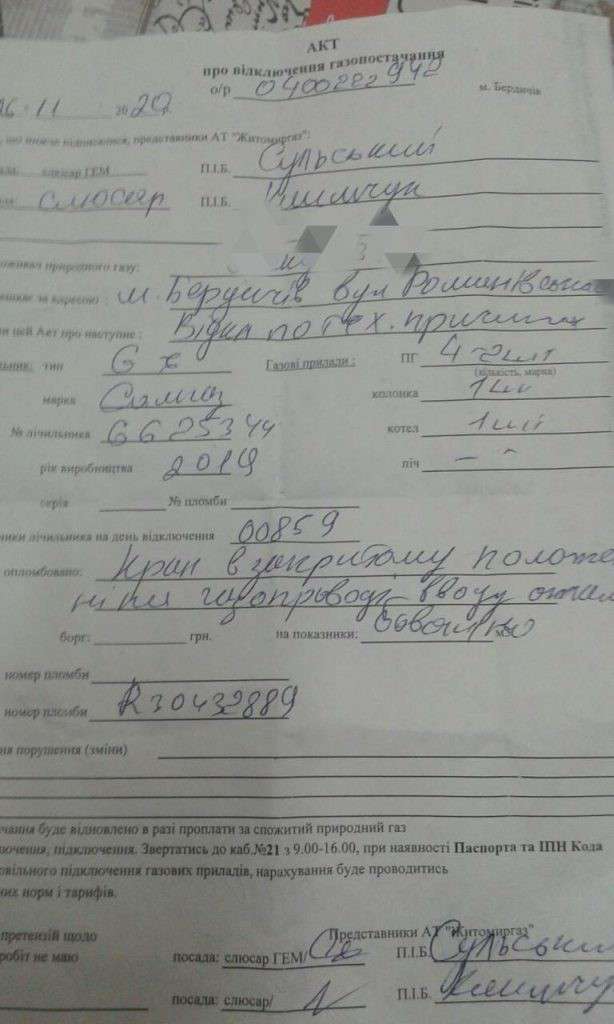 АКТ
про відключення газопостачання
о/р 0400282942 м. Бердичів
16 11 2020
представники АТ "Житомиргаз":
слюсар ГЕМ П.І.Б. Сульський
слюсар П.І.Б. Климчук
природного газу:
м. Бердичів вул Романівська
цей Акт про наступне: Відкл по тех. причинах
тип G Газові прилади: ПГ 4
(кількість, марка)
марка Самгаз колонка 1 шт
№ лічильника 6625344 котел 1 шт
рік виробництва 2019 піч –
серія № пломби
лічильника на день відключення 00859
опломбовано: Кран в закритому положе
нні на газопроводі-вводу
борг: грн. на показники:
номер пломби
номер пломби R30432889
порушення (зміни)
буде відновлено в разі проплати за спожитий природний газ
підключення. Звертатись до каб.№21 з 9.00-16.00, при наявності Паспорта та ІПН Кода
підключення газових приладів, нарахування буде проводитись
норм і тарифів.
претензій щодо Представники АТ "Житомиргаз"
не маю посада: слюсар ГЕМ/ П.І.Б. Сульський
посада: слюсар/ П.І.Б. Климчу